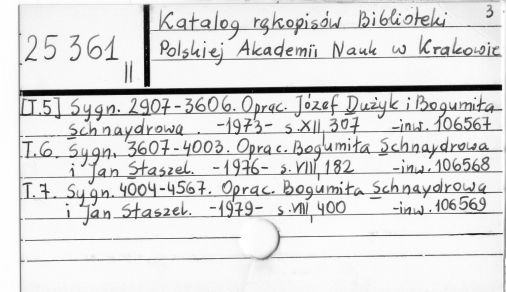 Katalog rękopisów Biblioteki 3
25 361 II Polskiej Akademii Nauk w Krakowie
[T.5] Sygn. 2907-3606. Oprac. Józef Dużyk i Bogumiła
Schnaydrowa. -1973- s. XII, 307 -inw. 106567
T.6. Sygn. 3607-4003. Oprac. Bogumiła Schnaydrowa
i Jan Staszel. -1976- s. VIII, 182 -inw. 106568
T.7. Sygn. 4004-4567. Oprac. Bogumiła Schnaydrowa
i Jan Staszel. -1979- s. VIII, 400 -inw. 106569